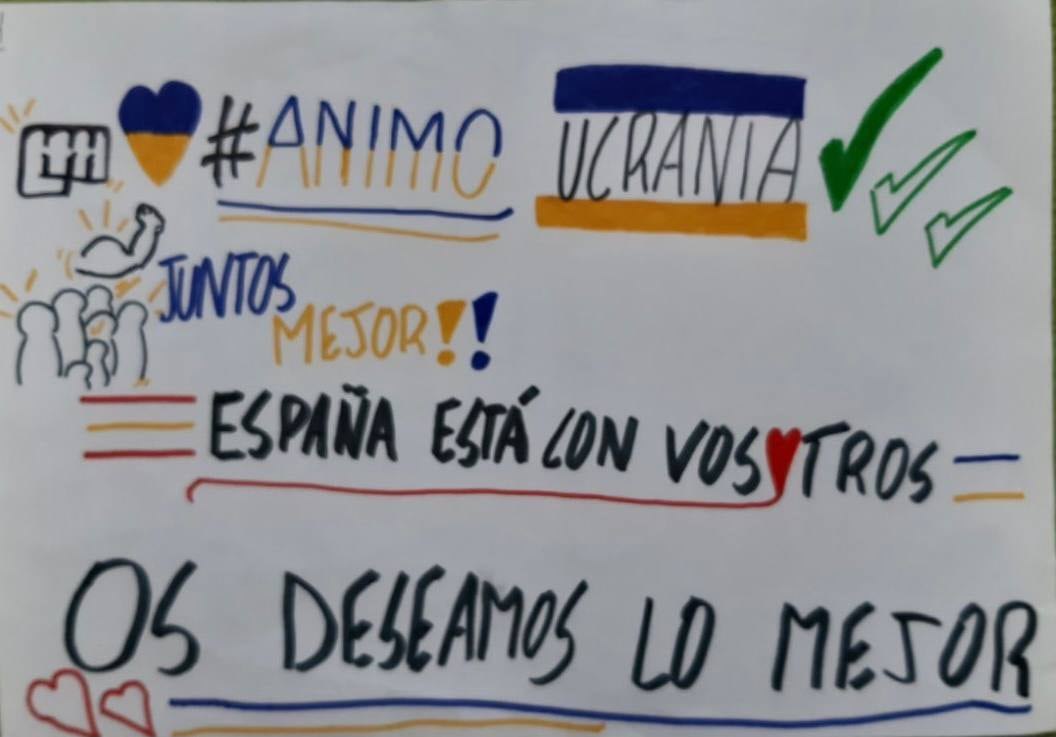 #ANIMO UCRANIA
JUNTOS
MEJOR!!
ESPAÑA ESTÁ CON VOS♥TROS
OS DESEAMOS LO MEJOR